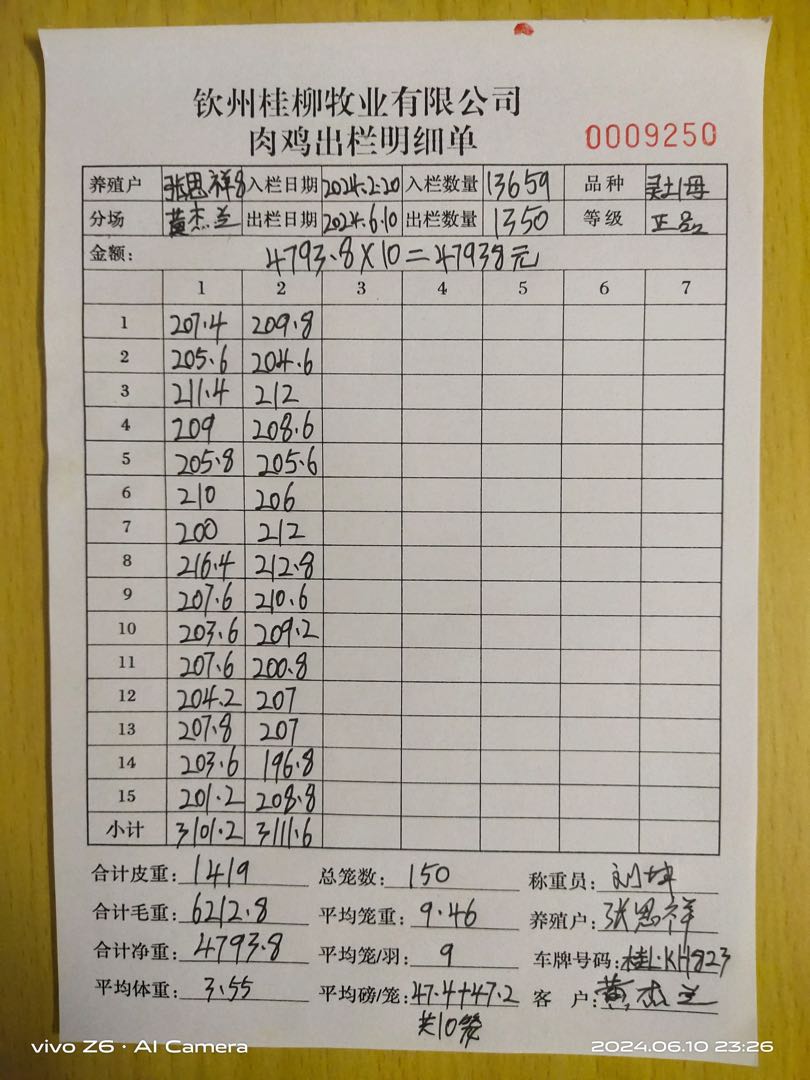 钦州桂柳牧业有限公司
肉鸡出栏明细单 0009250
养殖户 张思祥8 入栏日期 2024.2.20 入栏数量 13659 品种 灵土1母
分场 黄杰兰 出栏日期 2024.6.10 出栏数量 1350 等级 正品
金额: 4793.8×10=47938元
1 2 3 4 5 6 7
1 207.4 209.8
2 205.6 204.6
3 211.4 212
4 209 208.6
5 205.8 205.6
6 210 206
7 200 212
8 216.4 212.8
9 207.6 210.6
10 203.6 209.2
11 207.6 200.8
12 204.2 207
13 207.8 207
14 203.6 196.8
15 201.2 208.8
小计 3101.2 3111.6
合计皮重: 1419 总笼数: 150 称重员: 刘坤
合计毛重: 6212.8 平均笼重: 9.46 养殖户: 张思祥
合计净重: 4793.8 平均笼/羽: 9 车牌号码: 桂L·KH823
平均体重: 3.55 平均磅/笼: 47.4+47.2 客 户: 黄杰兰
共10笼
vivo Z6 · AI Camera 2024.06.10 23:26